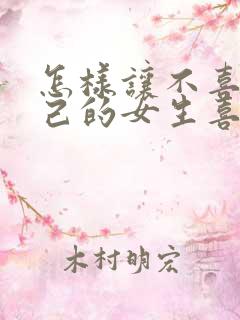 怎樣讓不喜
己的女生喜
木村明宏